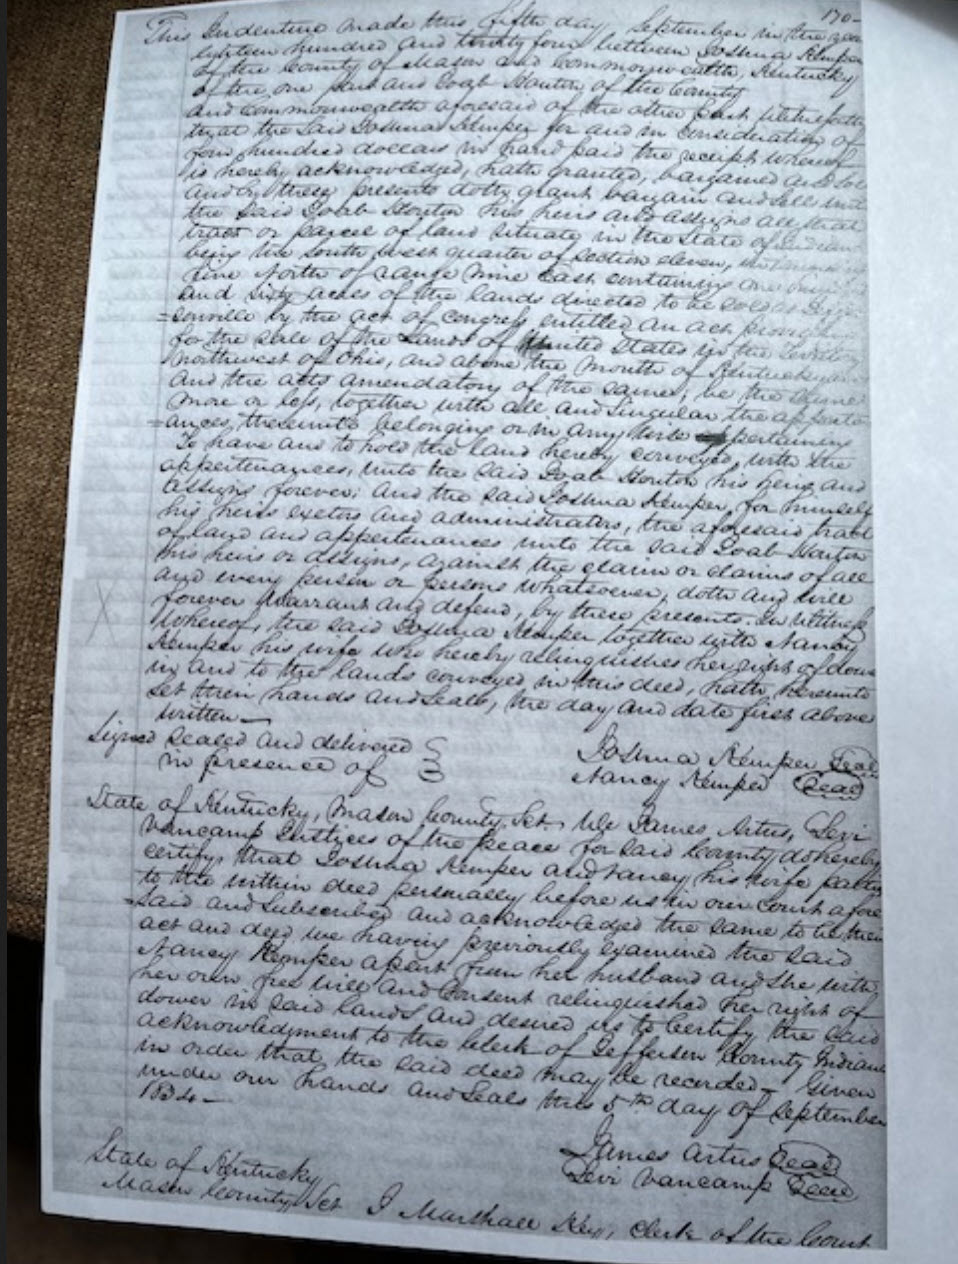 170-
This Indenture made this fifth day September in the year
eighteen hundred and thirty four between Joshua Kemper
of the County of Mason and Commonwealth, Kentucky
of the one part and Joab Houton of the County
and Commonwealth aforesaid of the other part Witnesseth
that the said Joshua Kemper for and in consideration of
four hundred dollars in hand paid the receipt whereof
is hereby acknowledged, hath granted, bargained and sold
and by these presents doth grant bargain and sell unto
the said Joab Houton his heirs and assigns all that
tract or parcel of land situate in the State of Indian
being the South West quarter of section eleven, in
nine North of range nine East containing one
and sixty acres of the lands directed to be sold at Jeffer
=sonville by the act of Congress entitled an act providing
for the sale of the Lands of United States in the Territory
northwest of Ohio, and above the mouth of Kentucky
and the acts amendatory of the same, be the same
more or less, together with all and singular the appurte
=ances, thereunto belonging or in any wise appertaining
To have and to hold the land hereby conveyed, with the
appertenances, unto the said Joab Houton his heirs and
assigns forever; and the said Joshua Kemper, for himself
his heirs exetors and administrators, the aforesaid tract
of land and appertenances unto the said Joab Houton
his heirs or assigns, against the claim or claims of all
and every person or persons whatsoever, doth and will
forever Warrant and defend, by these presents. In Witness
Whereof, the said Joshua Kemper together with Nancy
Kemper his wife who hereby relinquishes her right of dower
in and to the lands conveyed in this deed, hath hereunto
set their hands and seals, the day and date first above
written—
Signed sealed and delivered
in presence of
Joshua Kemper Seal
Nancy Kemper Seal
State of Kentucky, Mason County Sct. We James Artus, Levi
Vancamp Justices of the peace for said County do hereby
certify, that Joshua Kemper and Nancy his wife party
to the within deed personally before us in our Court afore
=said and Subscribed and acknowledged the same to be their
act and deed we having previously examined the said
Nancy Kemper apart from her husband and she with
her own free will and Consent relinquished her right of
dower in said lands and desired us to Certify the said
acknowledgment to the Clerk of Jefferson County Indiana
in order that the said deed may be recorded— Given
under our hands and Seals this 5th day of September
1834—
James Artus Seal
Levi Vancamp Seal
State of Kentucky
Mason County Sct I Marshall Key, Clerk of the Court